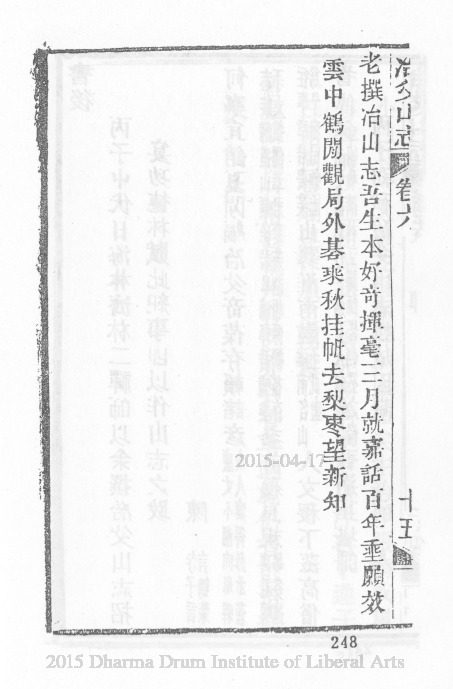 冶父山志 卷六 十五
老撰冶山志吾生本好奇揮毫三月就嘉話百年垂願效
雲中鶴閒觀局外碁乘秋挂帆去梨棗望新知
2015-04-17
248
2015 Dharma Drum Institute of Liberal Arts